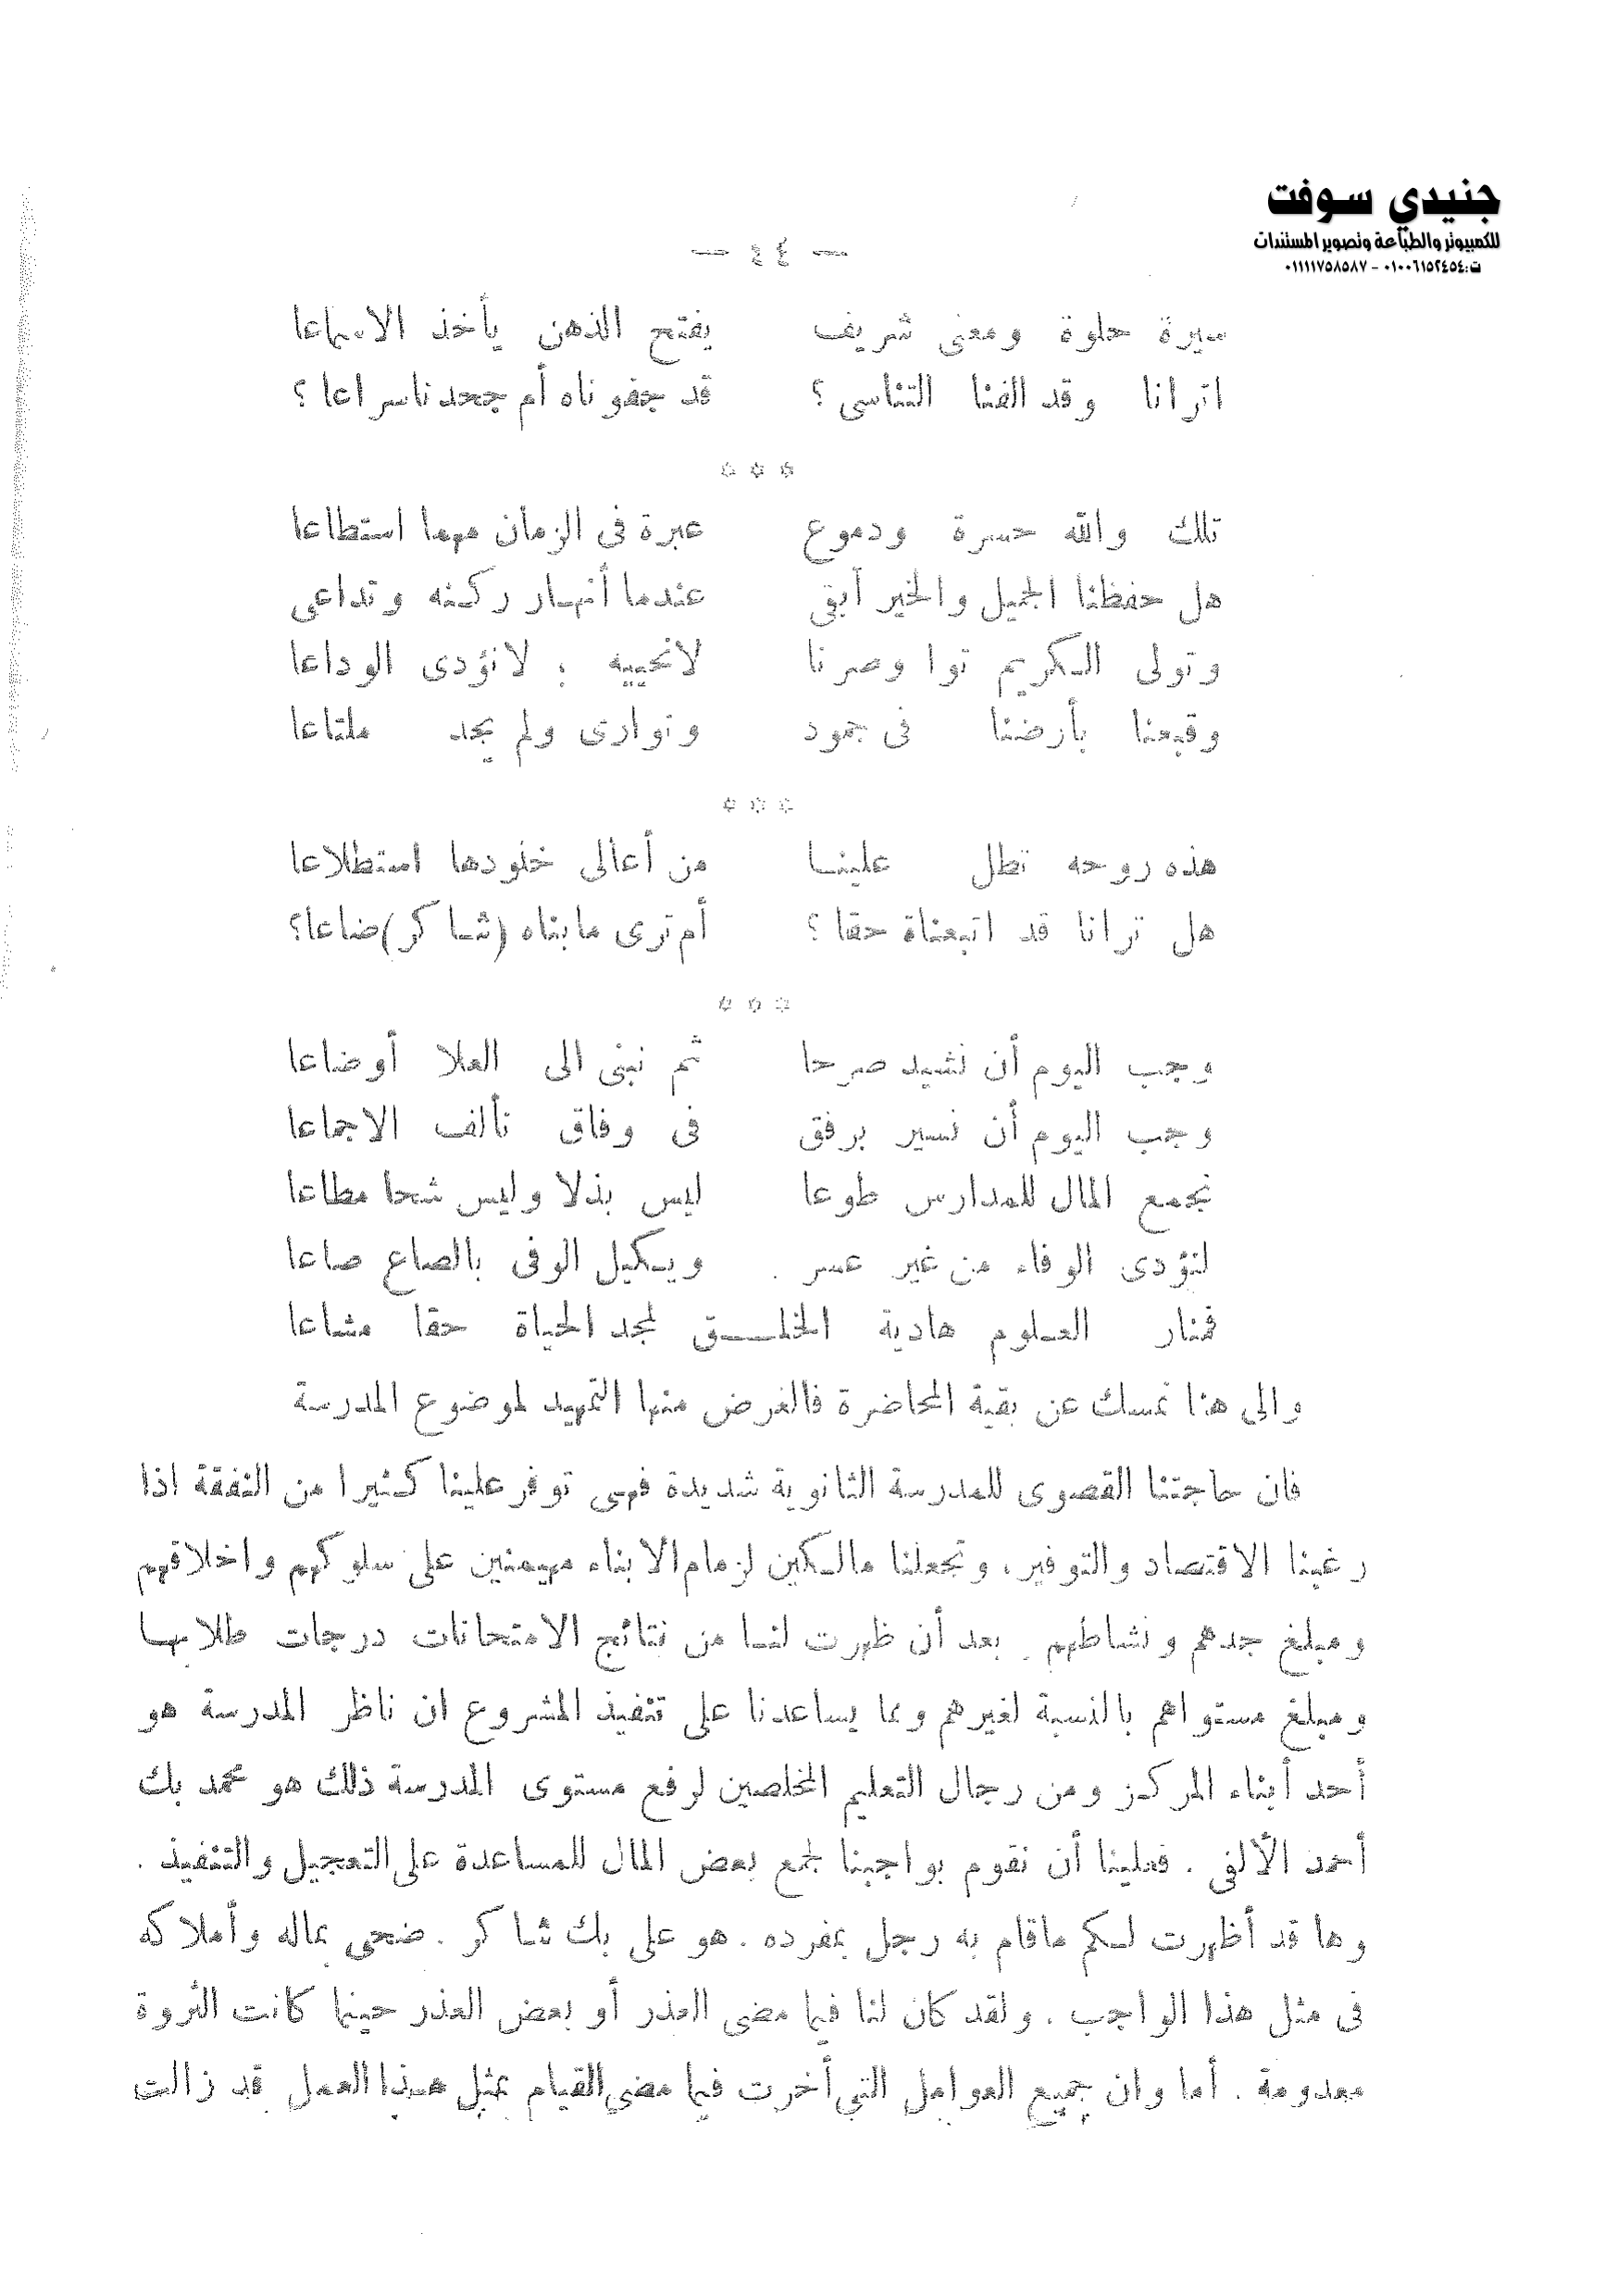 جنيدي سوفت
للكمبيوتر والطباعة وتصوير المستندات
ت:٠١٠٠٦١٥٢٤٥٤ - ٠١١١١٧٥٨٥٨٧
— ٤٤ —
سيرة حلوة ومعنى شريف يفتح الذهن يأخذ الاسماعا
اترانا وقد الفنا التناسى ؟ قد جفوناه أم جحدنا سراعا ؟
☆ ☆ ☆
تلك والله حسرة ودموع عبرة فى الزمان مهما استطاعا
هل حفظنا الجميل والخير أبقى عندما أنهار ركنه وتداعى
وتولى الكريم توا وصرنا لانحييه ؛ لانؤدى الوداعا
وقبعنا بأرضنا فى جمود وتوارى ولم يجد ملتاعا
☆ ☆ ☆
هذه روحه تطل علينا من أعالى خلودها استطلاعا
هل ترانا قد اتبعناة حقا ؟ أم ترى مابناه (شاكر) ضاعا؟
☆ ☆ ☆
وجب اليوم أن نشيد صرحا ثم نبنى الى العلا أوضاعا
وجب اليوم أن نسير برفق فى وفاق تألف الاجماعا
نجمع المال للمدارس طوعا ليس بذلا وليس شحا مطاعا
لنؤدى الوفاء من غير عسر . ويكيل الوفى بالصاع صاعا
فمنار العلوم هادية الخلق لمجد الحياة حقا مشاعا
والى هنا نمسك عن بقية المحاضرة فالغرض منها التمهيد لموضوع المدرسة
فان حاجتنا القصوى للمدرسة الثانوية شديدة فهى توفر علينا كثيرا من النفقة اذا
رغبنا الاقتصاد والتوفير، وتجعلنا مالكين لزمام الابناء مهيمنين على سلوكهم واخلاقهم
ومبلغ جدهم ونشاطهم . بعد أن ظهرت لنا من نتائج الامتحانات درجات طلابها
ومبلغ مستواهم بالنسبة لغيرهم ومما يساعدنا على تنفيذ المشروع ان ناظر المدرسة هو
أحد أبناء المركز ومن رجال التعليم المخلصين لرفع مستوى المدرسة ذلك هو محمد بك
أحمد الألفى . فعلينا أن نقوم بواجبنا لجمع بعض المال للمساعدة على التعجيل والتنفيذ .
وها قد أظهرت لكم ماقام به رجل بمفرده . هو على بك شاكر . ضحى بماله وأملاكه
فى مثل هذا الواجب . ولقد كان لنا فيما مضى العذر أو بعض العذر حينما كانت الثروة
معدومة . أما وان جميع العوامل التى أخرت فيما مضى القيام بمثل هذا العمل قد زالت